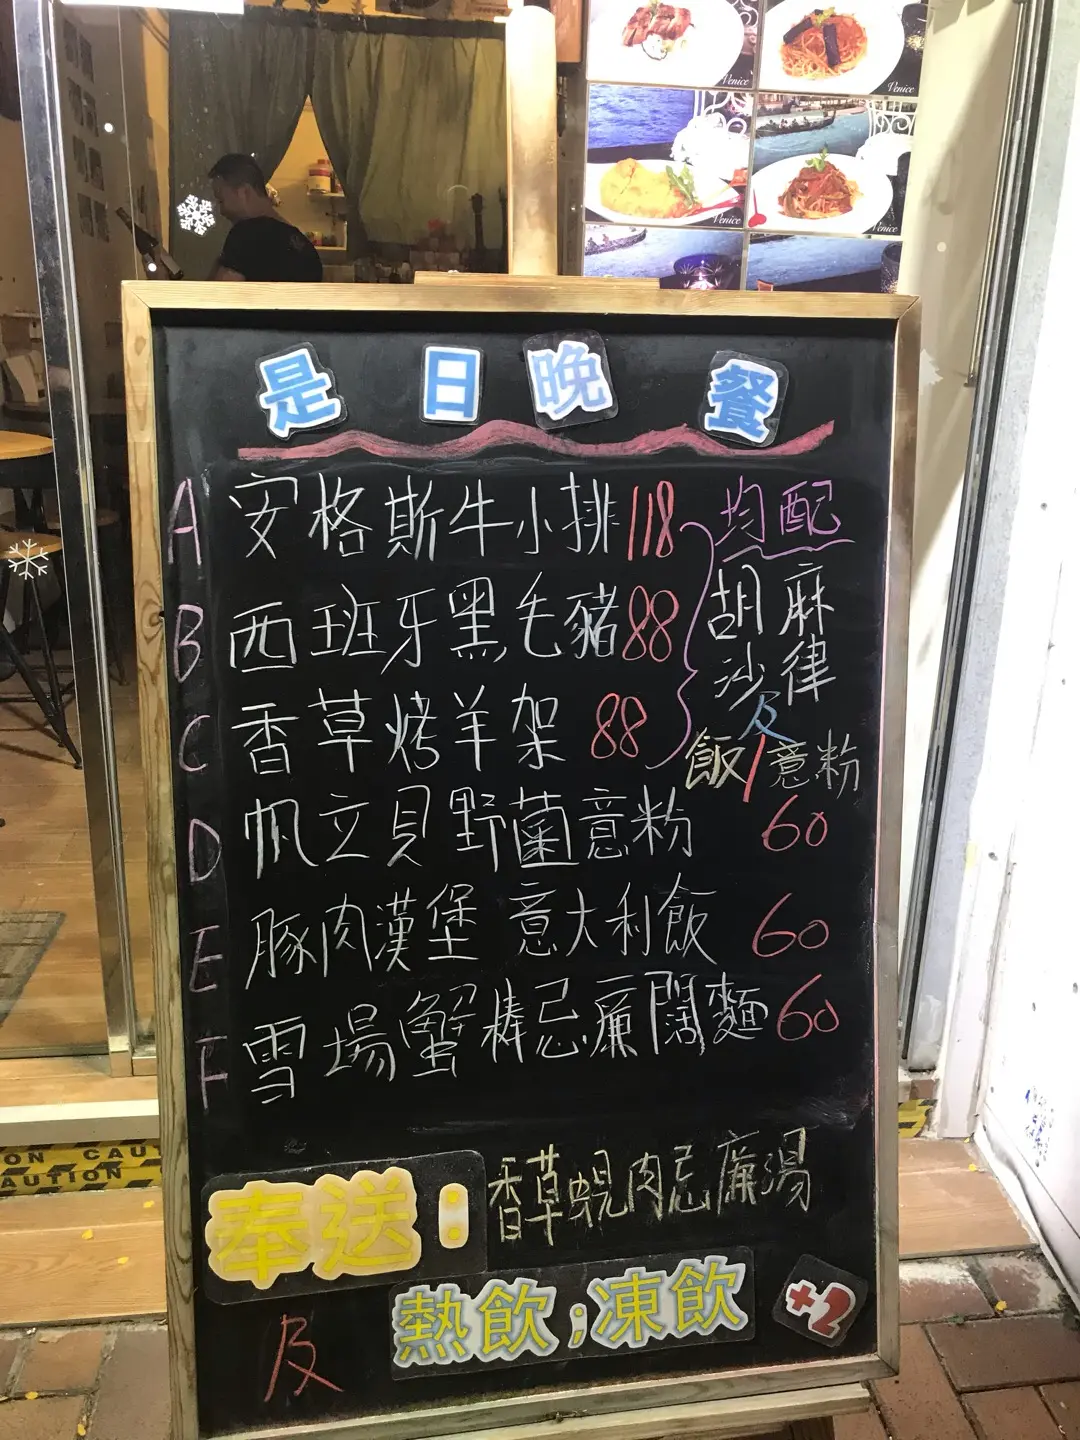 Venice
Venice
Venice
Venice
是日晚餐
A 安格斯牛小排 118
B 西班牙黑毛豬 88
C 香草烤羊架 88
均配
胡麻
沙律
及
飯/意粉
D 帆立貝野菌意粉 60
E 豚肉漢堡 意大利飯 60
F 雪場蟹棒忌廉闊麵 60
奉送：香草蜆肉忌廉湯
及 熱飲；凍飲 +2
ON CAUT
CAUTION